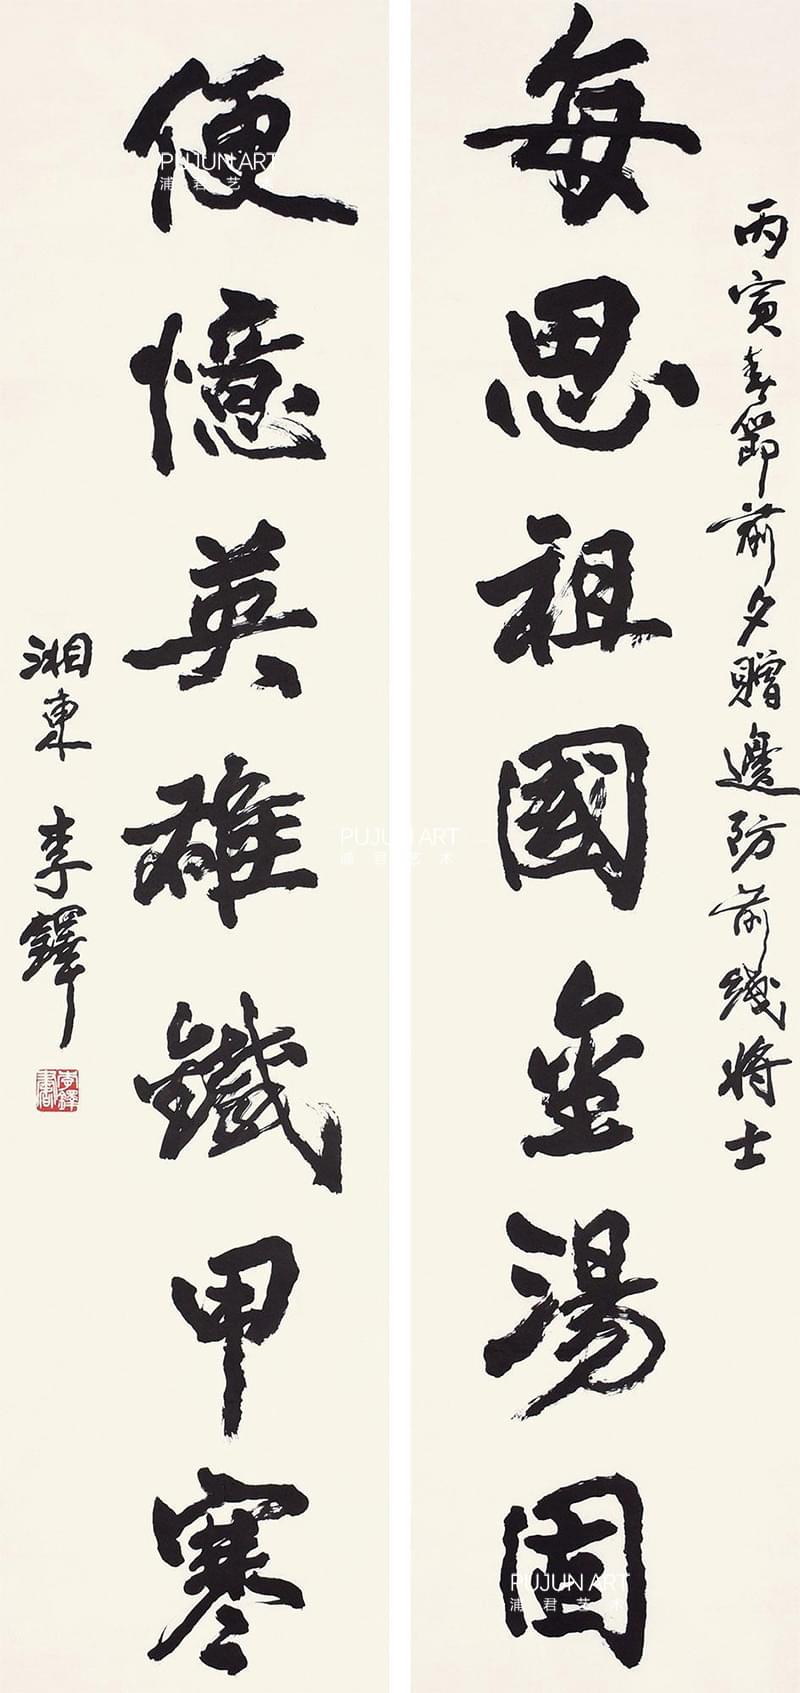 丙寅春節前夕贈邊防前線將士
每思祖國金湯固
便憶英雄鐵甲寒
湘東 李鐸
李鐸書
PUJUN ART
浦君艺术
PUJUN ART
浦君艺术
PUJUN ART
浦君艺术